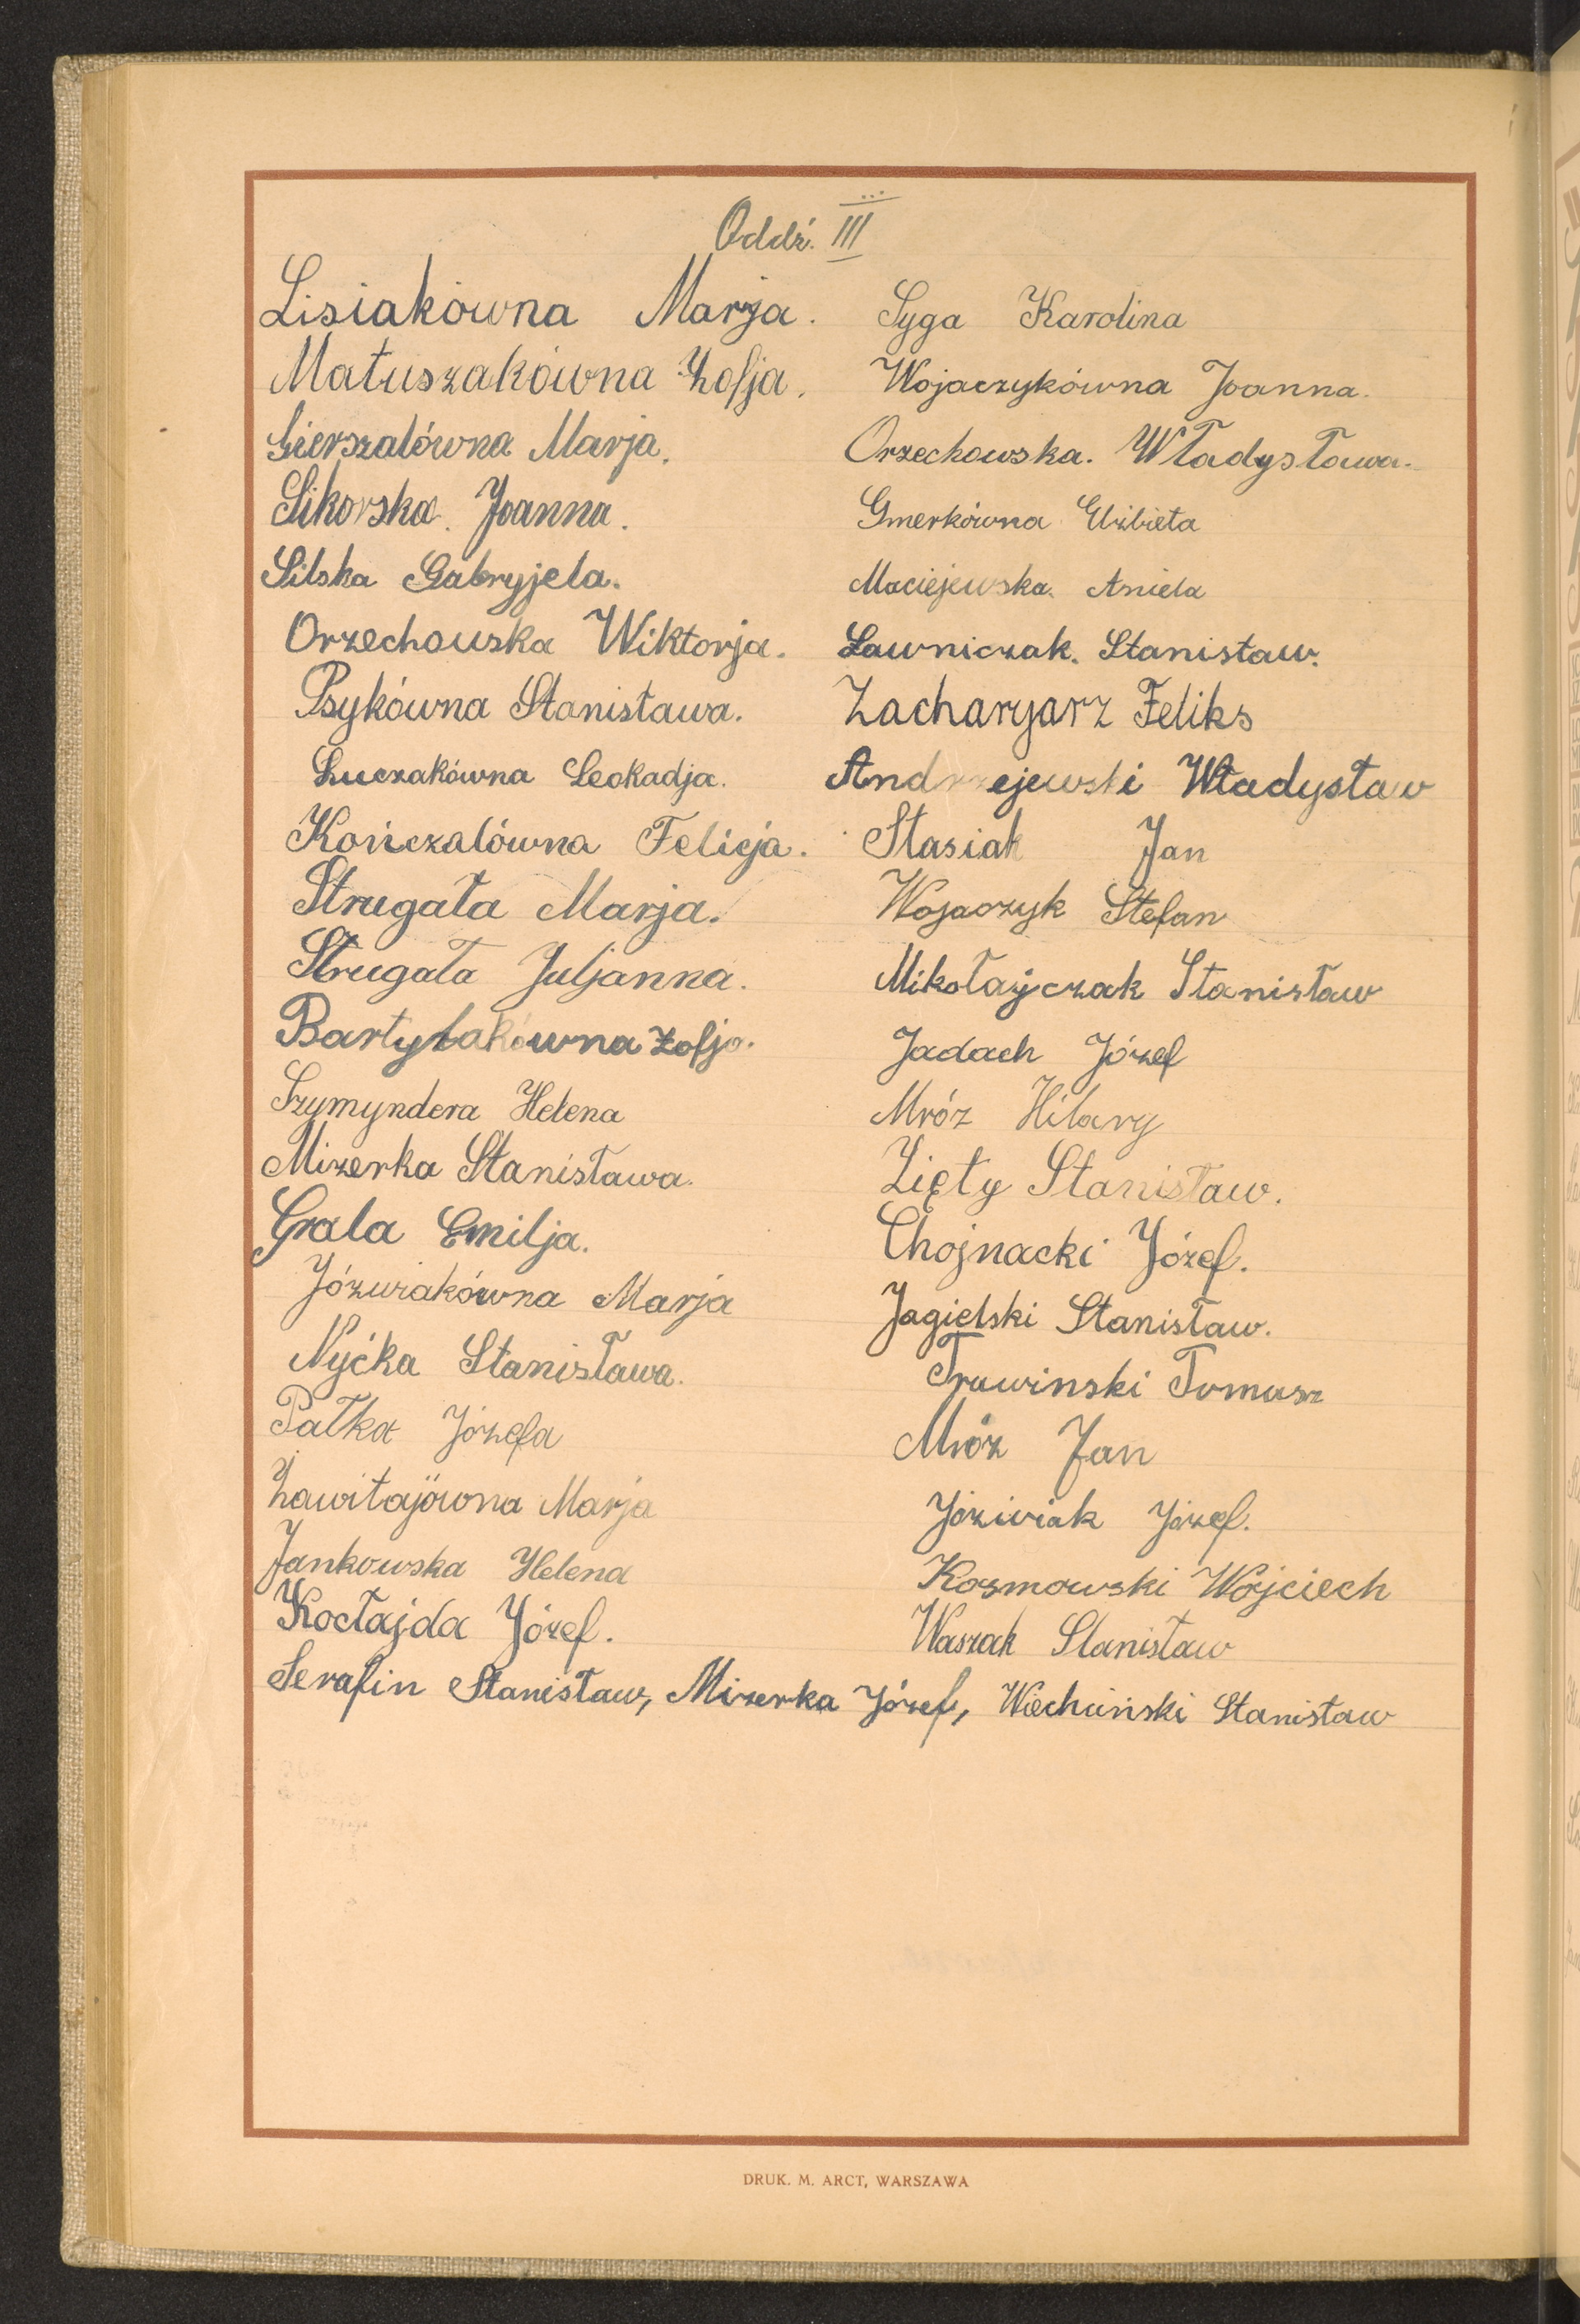 Oddź. III
Lisiakówna Marja.
Matuszakówna Zofja.
Gierszalówna Marja.
Sikorska. Joanna.
Silska Gabryjela.
Orzechowska Wiktorja.
Psykówna Stanisława.
Łuczakówna Leokadja.
Kończalówna Felicja.
Strugała Marja.
Strugała Juljanna.
Bartylakówna Zofja.
Szymyndera Helena
Mizerka Stanisława.
Grala Emilja.
Józwiakówna Marja
Nyćka Stanisława.
Pałka Józefa
Zawitajówna Marja
Jankowska Helena
Koctajda Józef.
Syga Karolina
Wojaczykówna Joanna.
Orzechowska. Władysława.
Gmerkówna Elżbieta
Maciejewska. Aniela
Ławniczak. Stanisław.
Zacharyarz Feliks
Andrzejewski Władysław
Stasiak Jan
Wojaczyk Stefan
Mikołajczak Stanisław
Jadach Józef
Mróz Hilary
Zięty Stanisław.
Chojnacki Józef.
Jagielski Stanisław.
Trawinski Tomasz
Mróz Jan
Józiwiak Józef.
Kosmowski Wojciech
Waszak Stanisław
Serafin Stanisław, Mizerka Józef, Wiechciński Stanisław
DRUK. M. ARCT, WARSZAWA